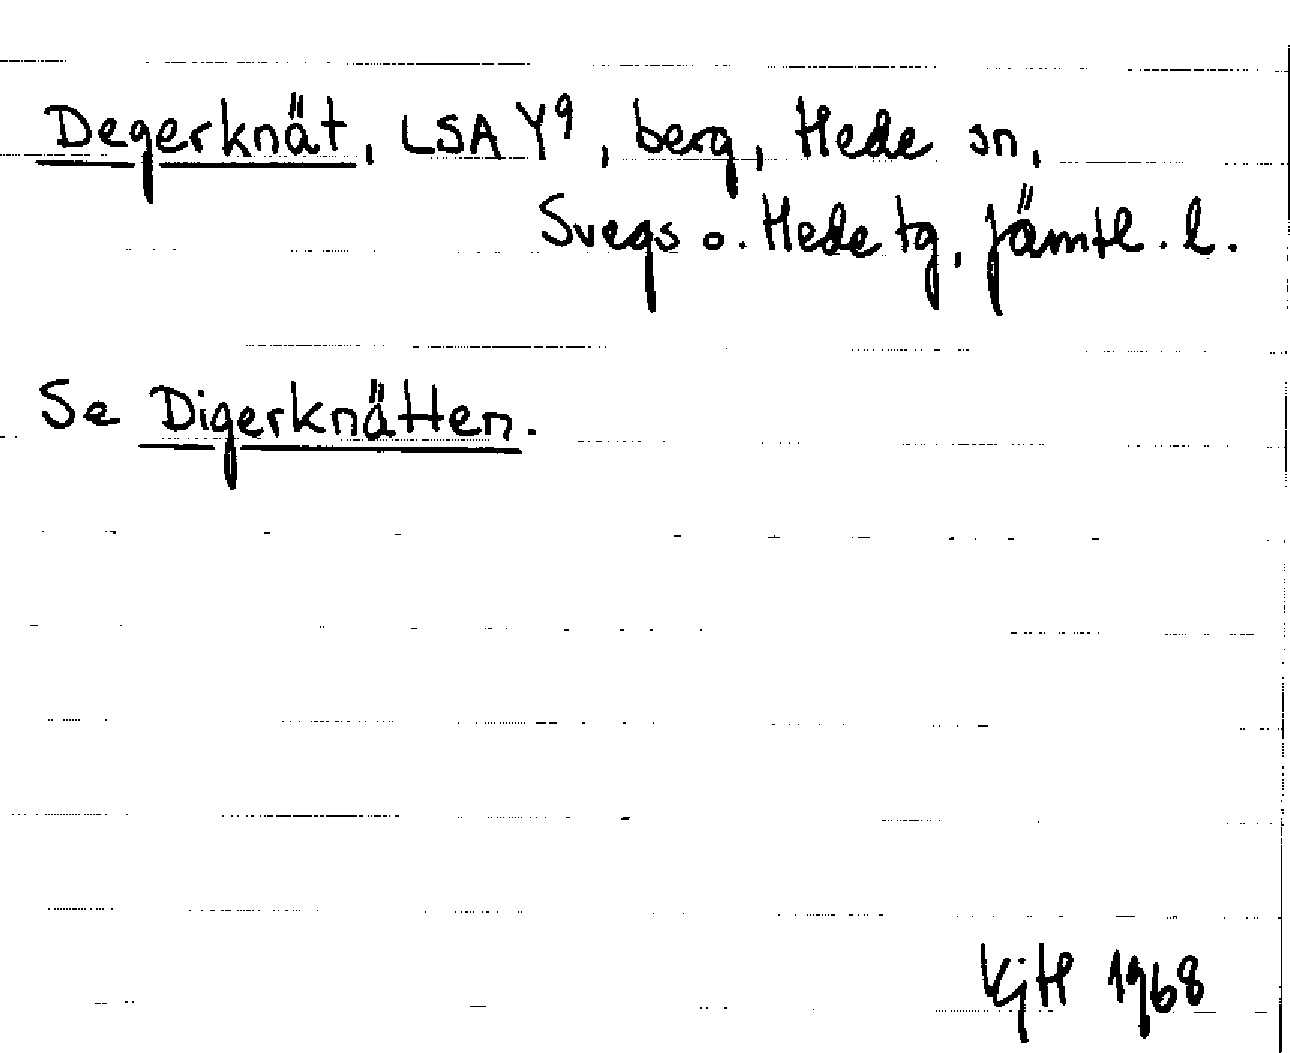 Degerknät, LSA Y9, berg, Hede sn,
Svegs o. Hede tg, Jämtl. l.
Se Digerknätten.
KjH 1968